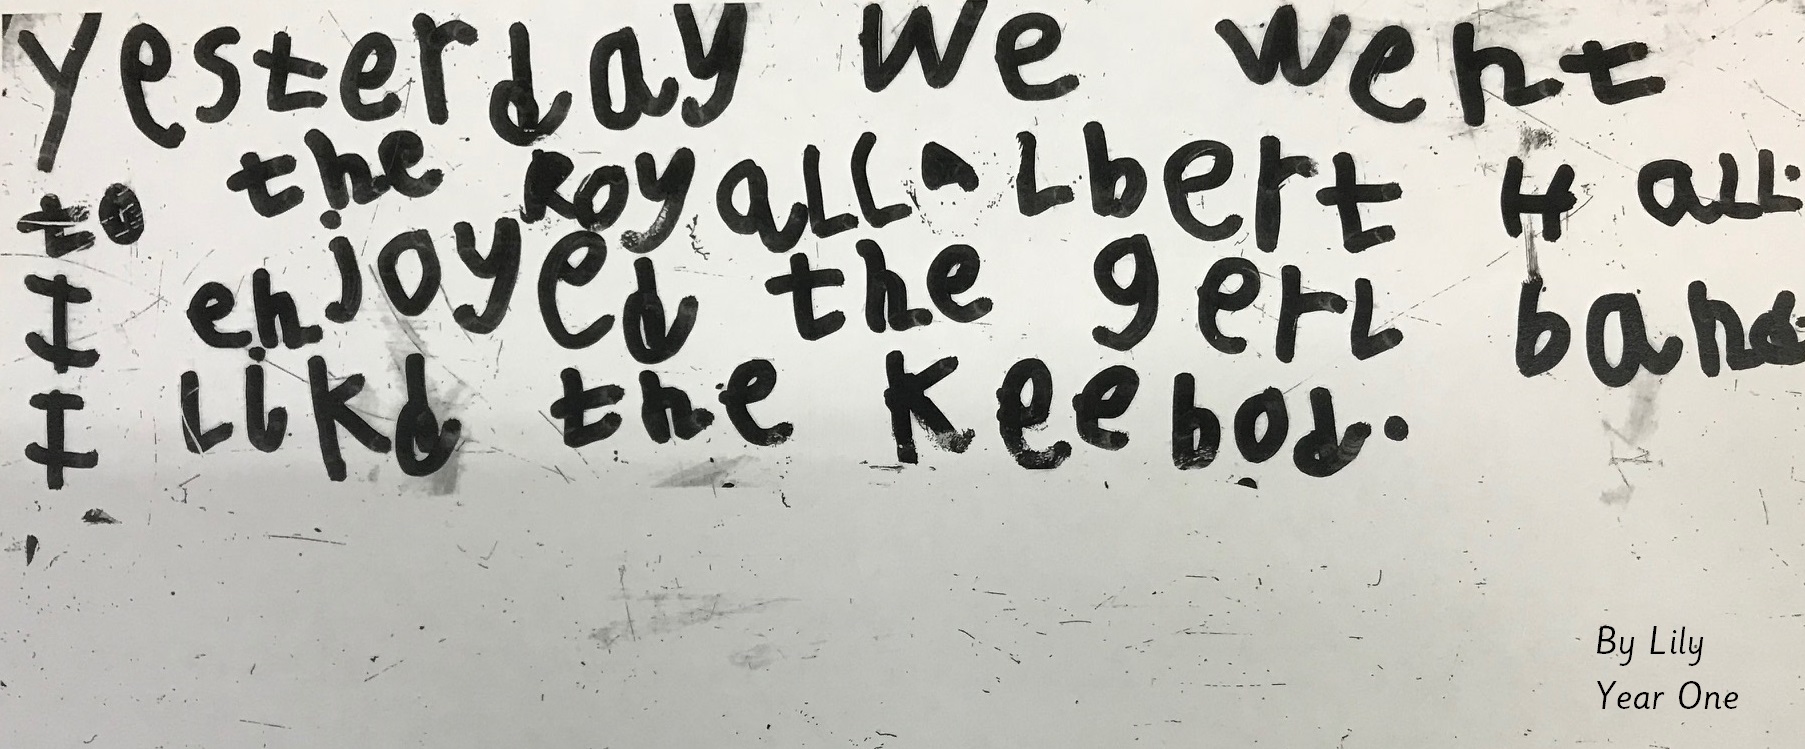 Yesterday we went
to the Royall Albert Hall.
I enjoyed the gerl band.
I likd the keebod.
By Lily
Year One